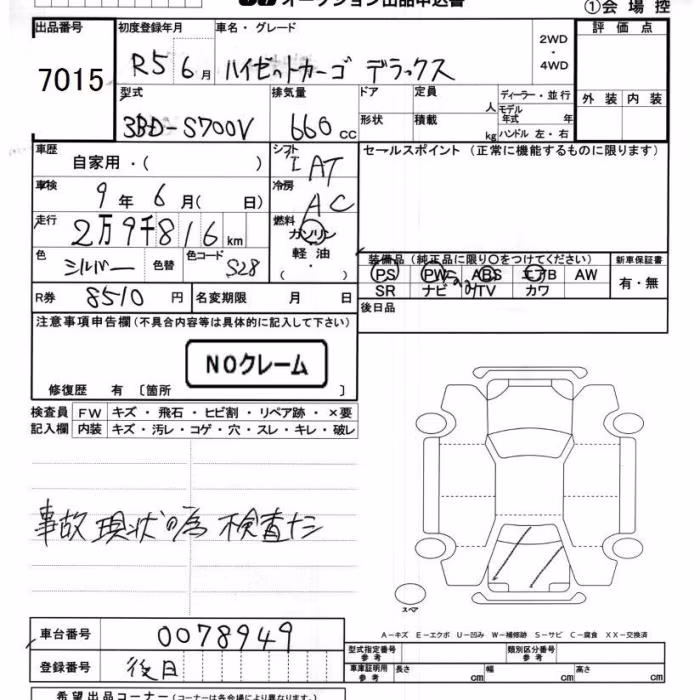 オークション出品申込書
①会場控
出品番号
7015
初度登録年月
R5 6月
車名・グレード
ハイゼットカーゴ デラックス
2WD・4WD
評価点
外装 内装
型式
3BD-S700V
排気量
660cc
ドア
形状
定員 人
積載 kg
ディーラー・並行
モデル年式 年
ハンドル 左・右
車歴
自家用・( )
シフト
IAT
セールスポイント (正常に機能するものに限ります)
車検
9年 6月( 日)
冷房
AC
走行
2万9千816km
燃料
ガソリン
軽油
・( )
色
シルバー
色替
色コード
S28
装備品 (純正品に限り○をつけてください)
PS PW ABS エアB AW
SR ナビ TV カワ
新車保証書
有・無
R券 8510円
名変期限 月 日
後日品
注意事項申告欄 (不具合内容等は具体的に記入して下さい)
NOクレーム
修復歴 有 〔箇所 〕
検査員 FW キズ・飛石・ヒビ割・リペア跡・×要
記入欄 内装 キズ・汚レ・コゲ・穴・スレ・キレ・破レ
事故現状の為 検査ナシ
スペア
A-キズ E-エクボ U-凹み W-補修跡 S-サビ C-腐食 XX-交換済
車台番号 0078949
登録番号 後日
型式指定番号参考
類別区分番号参考
車庫証明用参考 長さ cm 幅 cm 高さ cm
希望出品コーナー (コーナーは各会場により異なります)